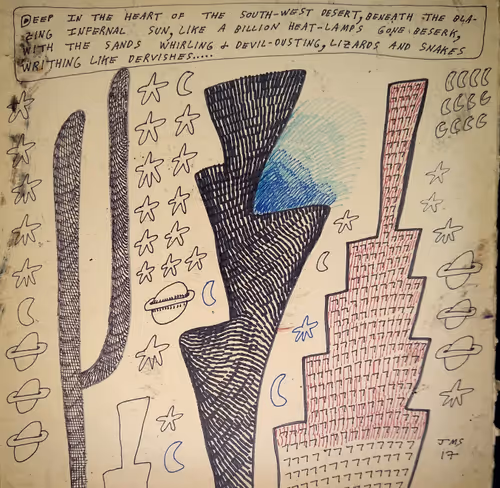 DEEP IN THE HEART OF THE SOUTH-WEST DESERT, BENEATH THE BLA-
ZING INFERNAL SUN, LIKE A BILLION HEAT-LAMPS GONE BESERK,
WITH THE SANDS WHIRLING & DEVIL-DUSTING, LIZARDS AND SNAKES
WRITHING LIKE DERVISHES.....
JMS
17